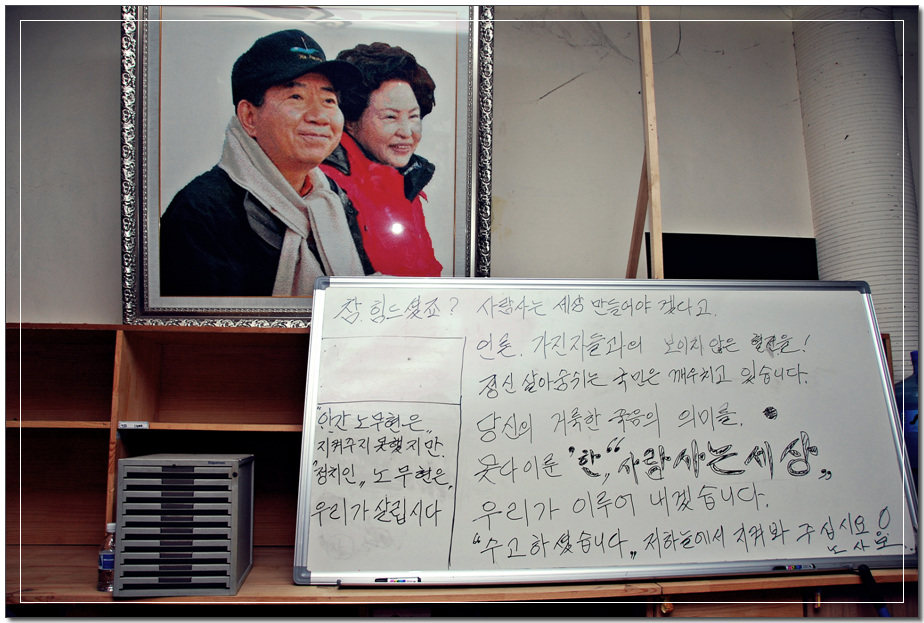 참 힘드셨죠? 사람사는 세상 만들어야 겠다고.
언론. 가진자들과의 보이지 않은 혈전을!
정신 살아숨쉬는 국민은 깨우치고 있습니다.
당신의 거룩한 죽음의 의미를.
못다 이룬 '한,, "사람 사는 세상,,
우리가 이루어 내겠습니다.
"수고하셨습니다,, 저하늘에서 지켜봐 주십시요
노사모
"인간 노무현은,,
지켜주지 못했지만.
"정치인,, 노무현은,
우리가 살립시다